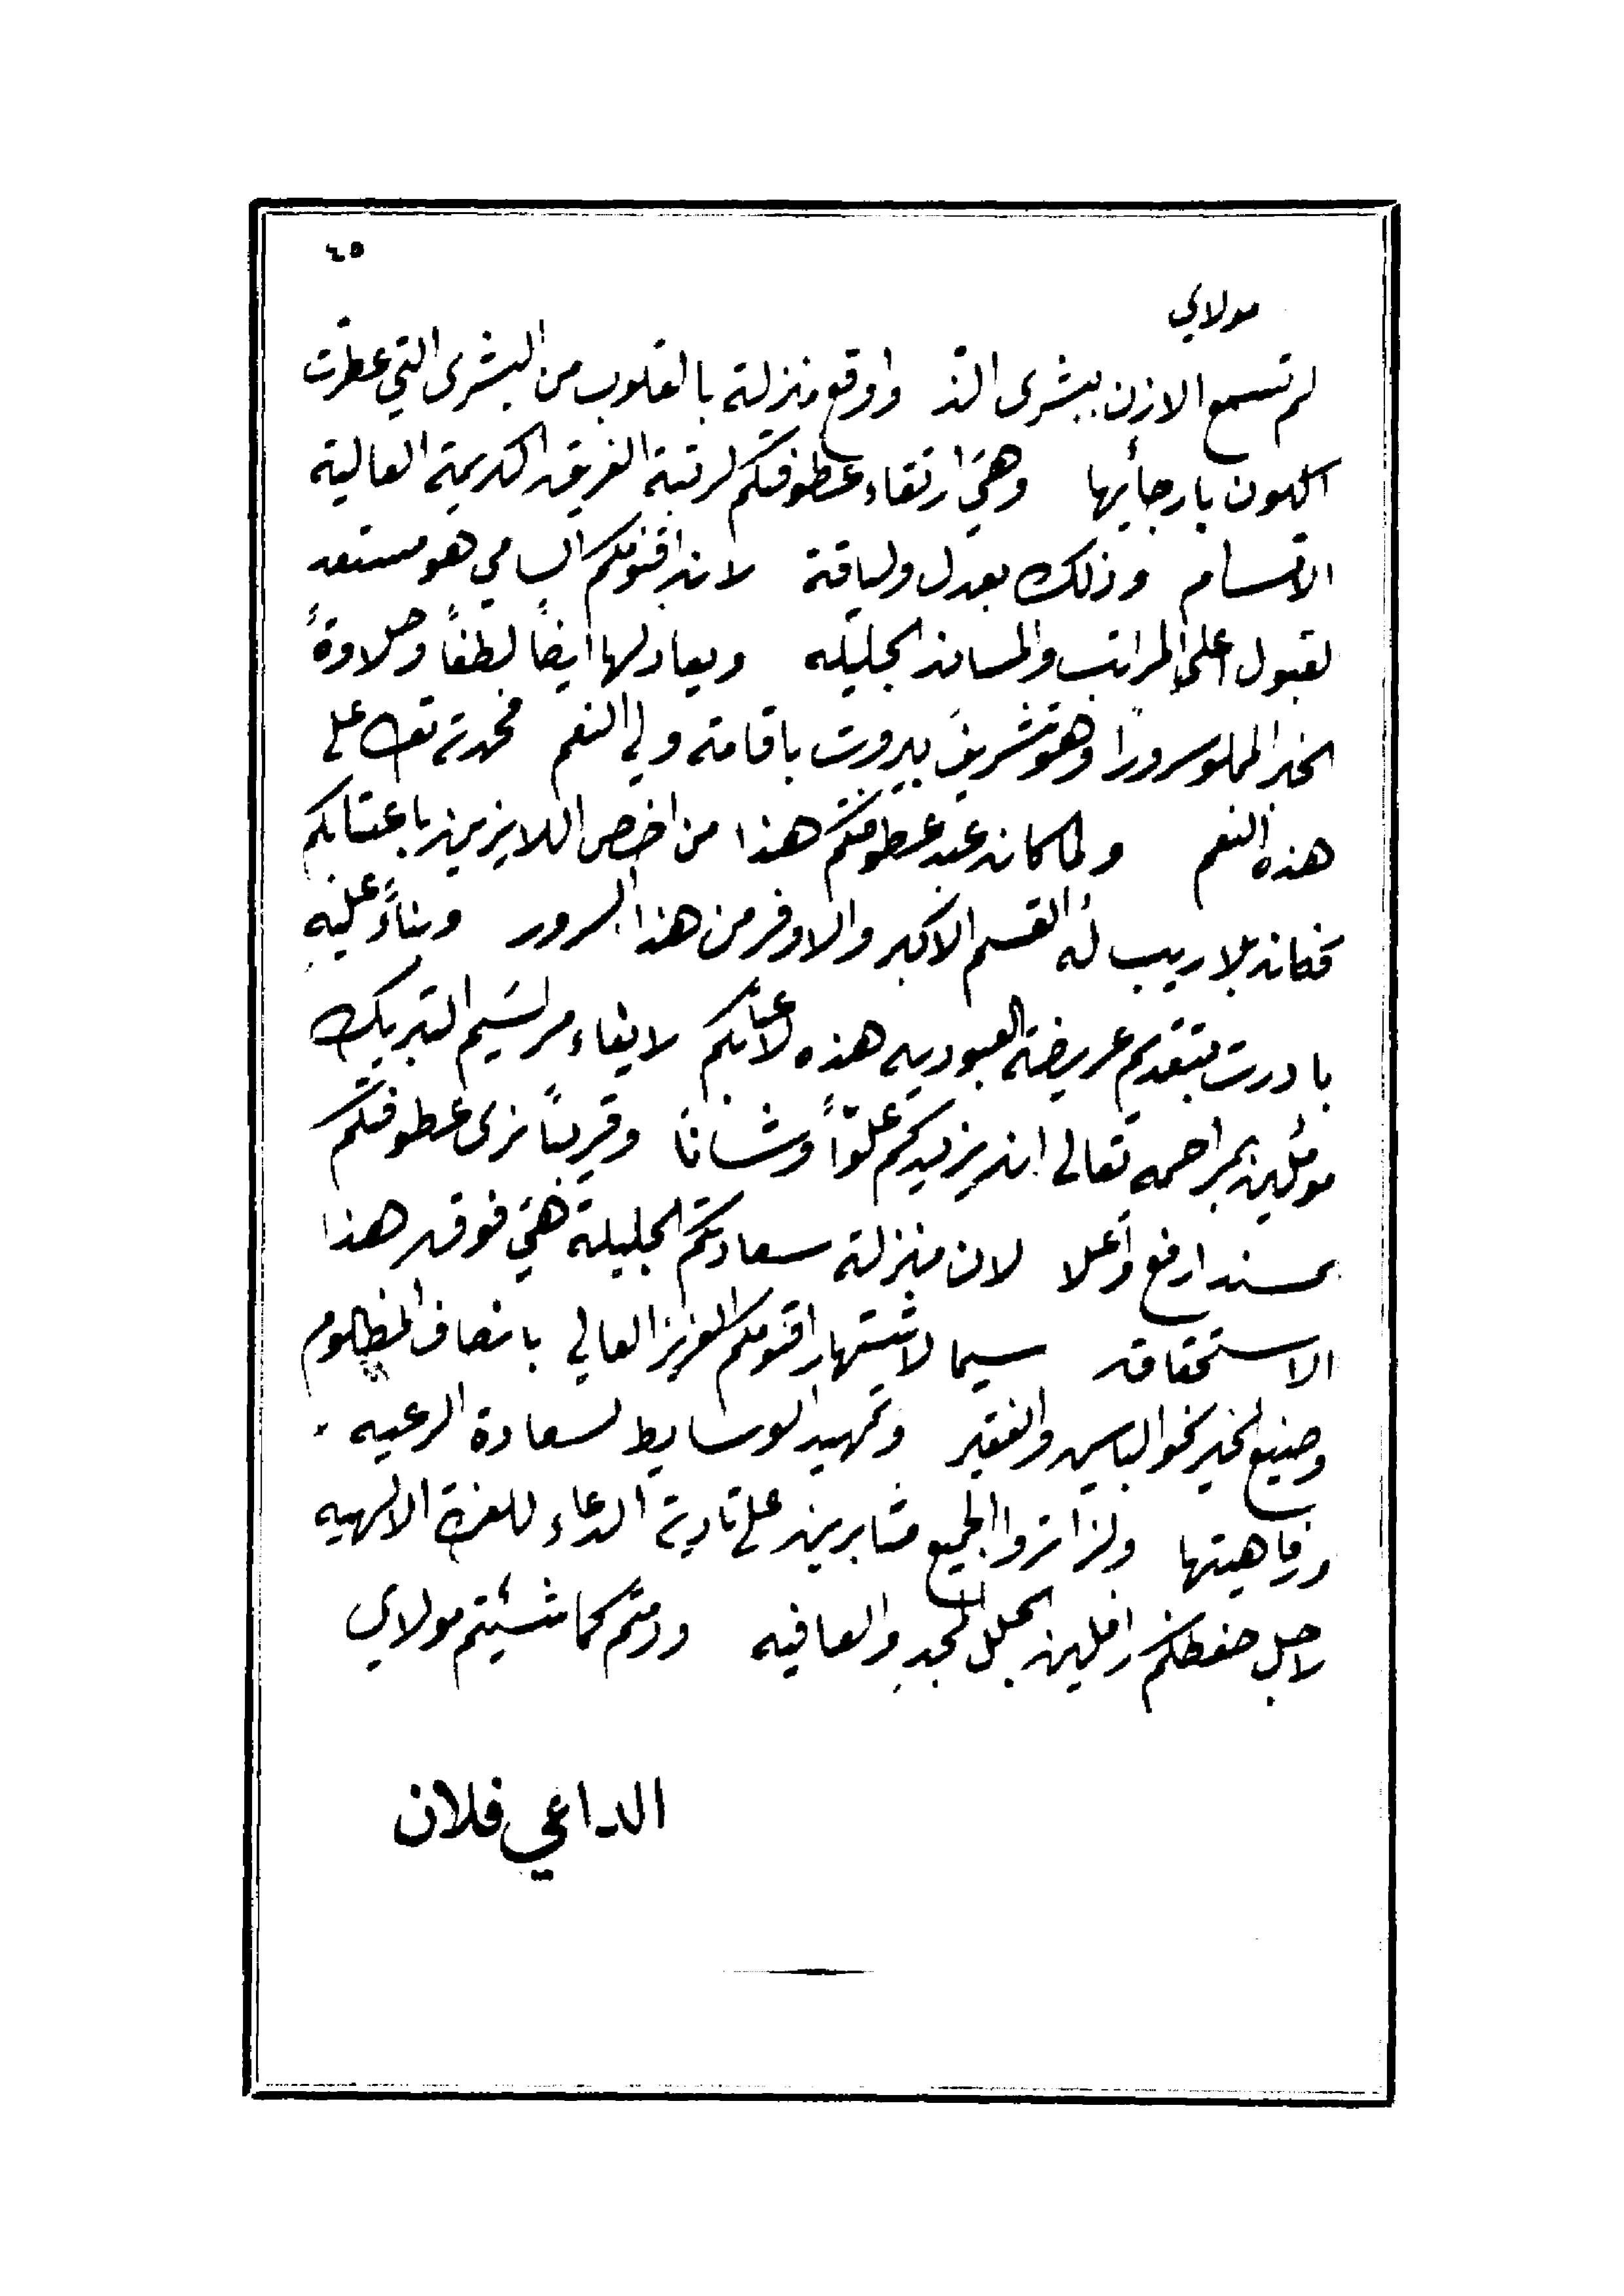 ٤٥
مولاي
لم تسمع الاذن ببشرى الذ واوقع منزلة بالقلوب من البشرى التي عطرت
الكون بارجائها وهي ارتقاء عطوفتكم لرتبة الفريق الكريمة العالية
الاتسام وذلك بعدل ولياقة لان اقنومكم السامي هو مستعد
لقبول اعلى المراتب والمساند الجليله ويعادلها ايضاً لطفاً وحلاوةً
الخبر المملو سروراً وهو تشريف بيروت باقامة ولي النعم فحمدته تعالى على
هذه النعم ولما كان عبد عطوفتكم هذا من اخص اللايزين باعتابكم
فكان بلا ريب له القسم الاكبر والاوفر من هذا السرور وبناءً عليه
بادرت بتقديم عريضة العبوديه هذه لاعتابكم لايفاء مراسيم التبريك
موملين بمراحمه تعالى ان يزيدكم علوّاً وشاناً وقريباً نرى عطوفتكم
بمسند ارفع وأعلا لان منزلة سعادتكم الجليلة هي فوق هذا
الاستحقاق سيما لاشتهار اقنومكم العزيز العالي بانصاف المظلوم
وصنيع الخير نحو البايس والفقير وتمهيد الوسايط لسعادة الرعيه
ورفاهيتها ولن تزالوا الجميع مثابرين على تادية الدعاء للعزة الالهيه
لاجل حفظكم رافلين بحلل المجد والعافيه ودمتم كما شئيتم مولاي
الداعي فلان